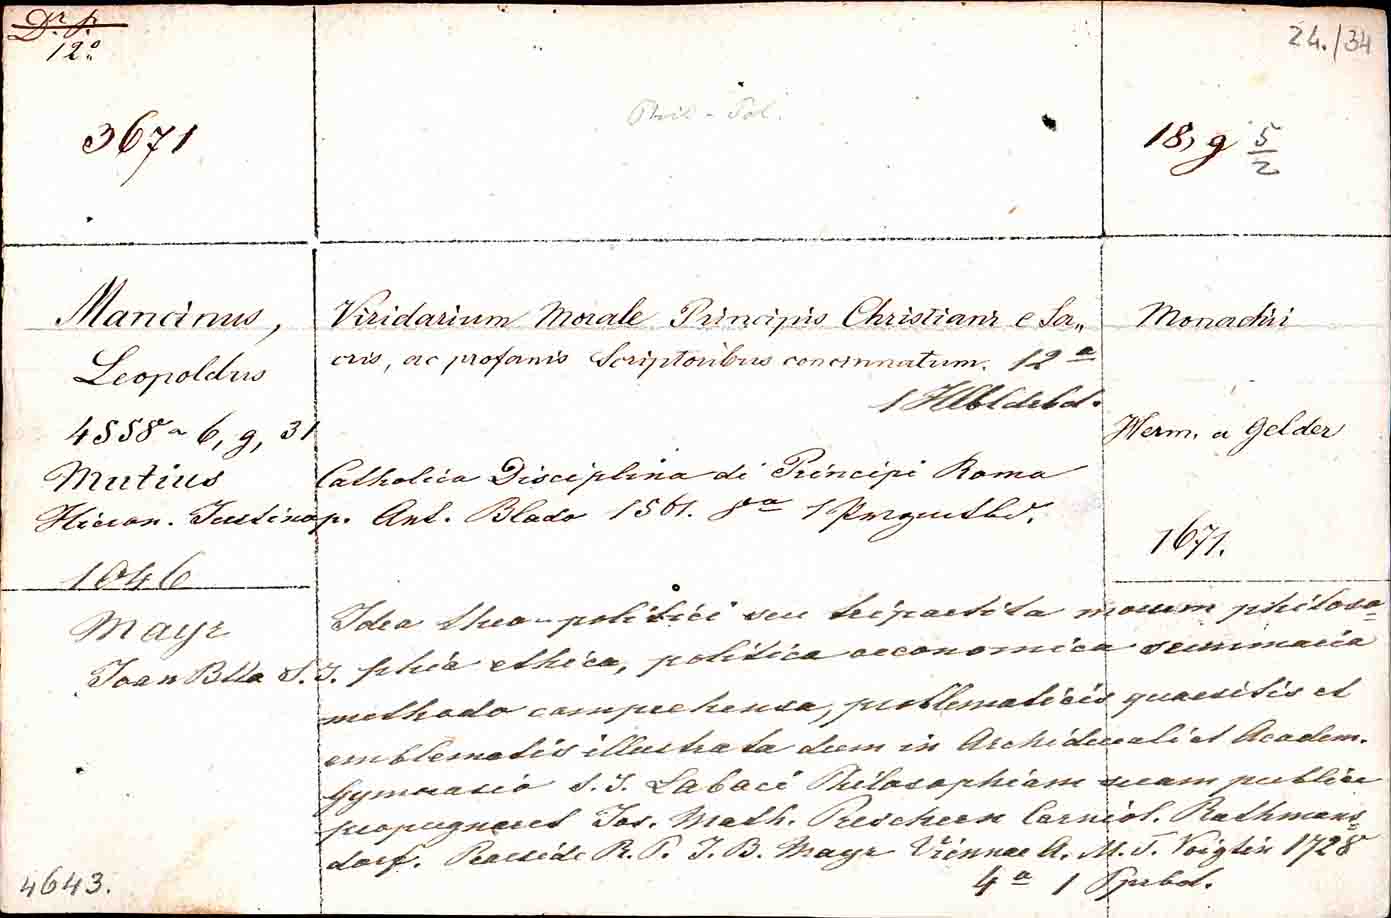 Dr. p.
12o
24./34
3671
Phil - Pol.
18, g 5/2
Mancinus, Viridarium Morale Principis Christiani e Sa„ Monachii
Leopoldus cris, ac profanis Scriptoribus concinnatum. 12a
1 Hlbldrbd.
4558a 6, g, 31 Herm. a Gelder
Mutius Catholica Disciplina di Principi Roma
Hieron. Justinop. Ant. Blado 1561. 8a 1 Prgmtbd.
1671.
1046
Mayr Idea theo-politici seu tripartita morum philoso-
Joan Btta S.J. phia ethica, politica oeconomica summaria
methodo comprehensa, problematicis quaesitis et
emblematis illustrata dum in Archiducali et Academ.
Gymnasio S.J. Labaci Philosophiam suam publice
propugnaret Jos. Math. Prescheren Carniol. Rathmans-
dorf. Praeside R.P. J.B. Mayr Viennae A. M. T. Voigtin 1728
4a 1 Ppbd.
4643.